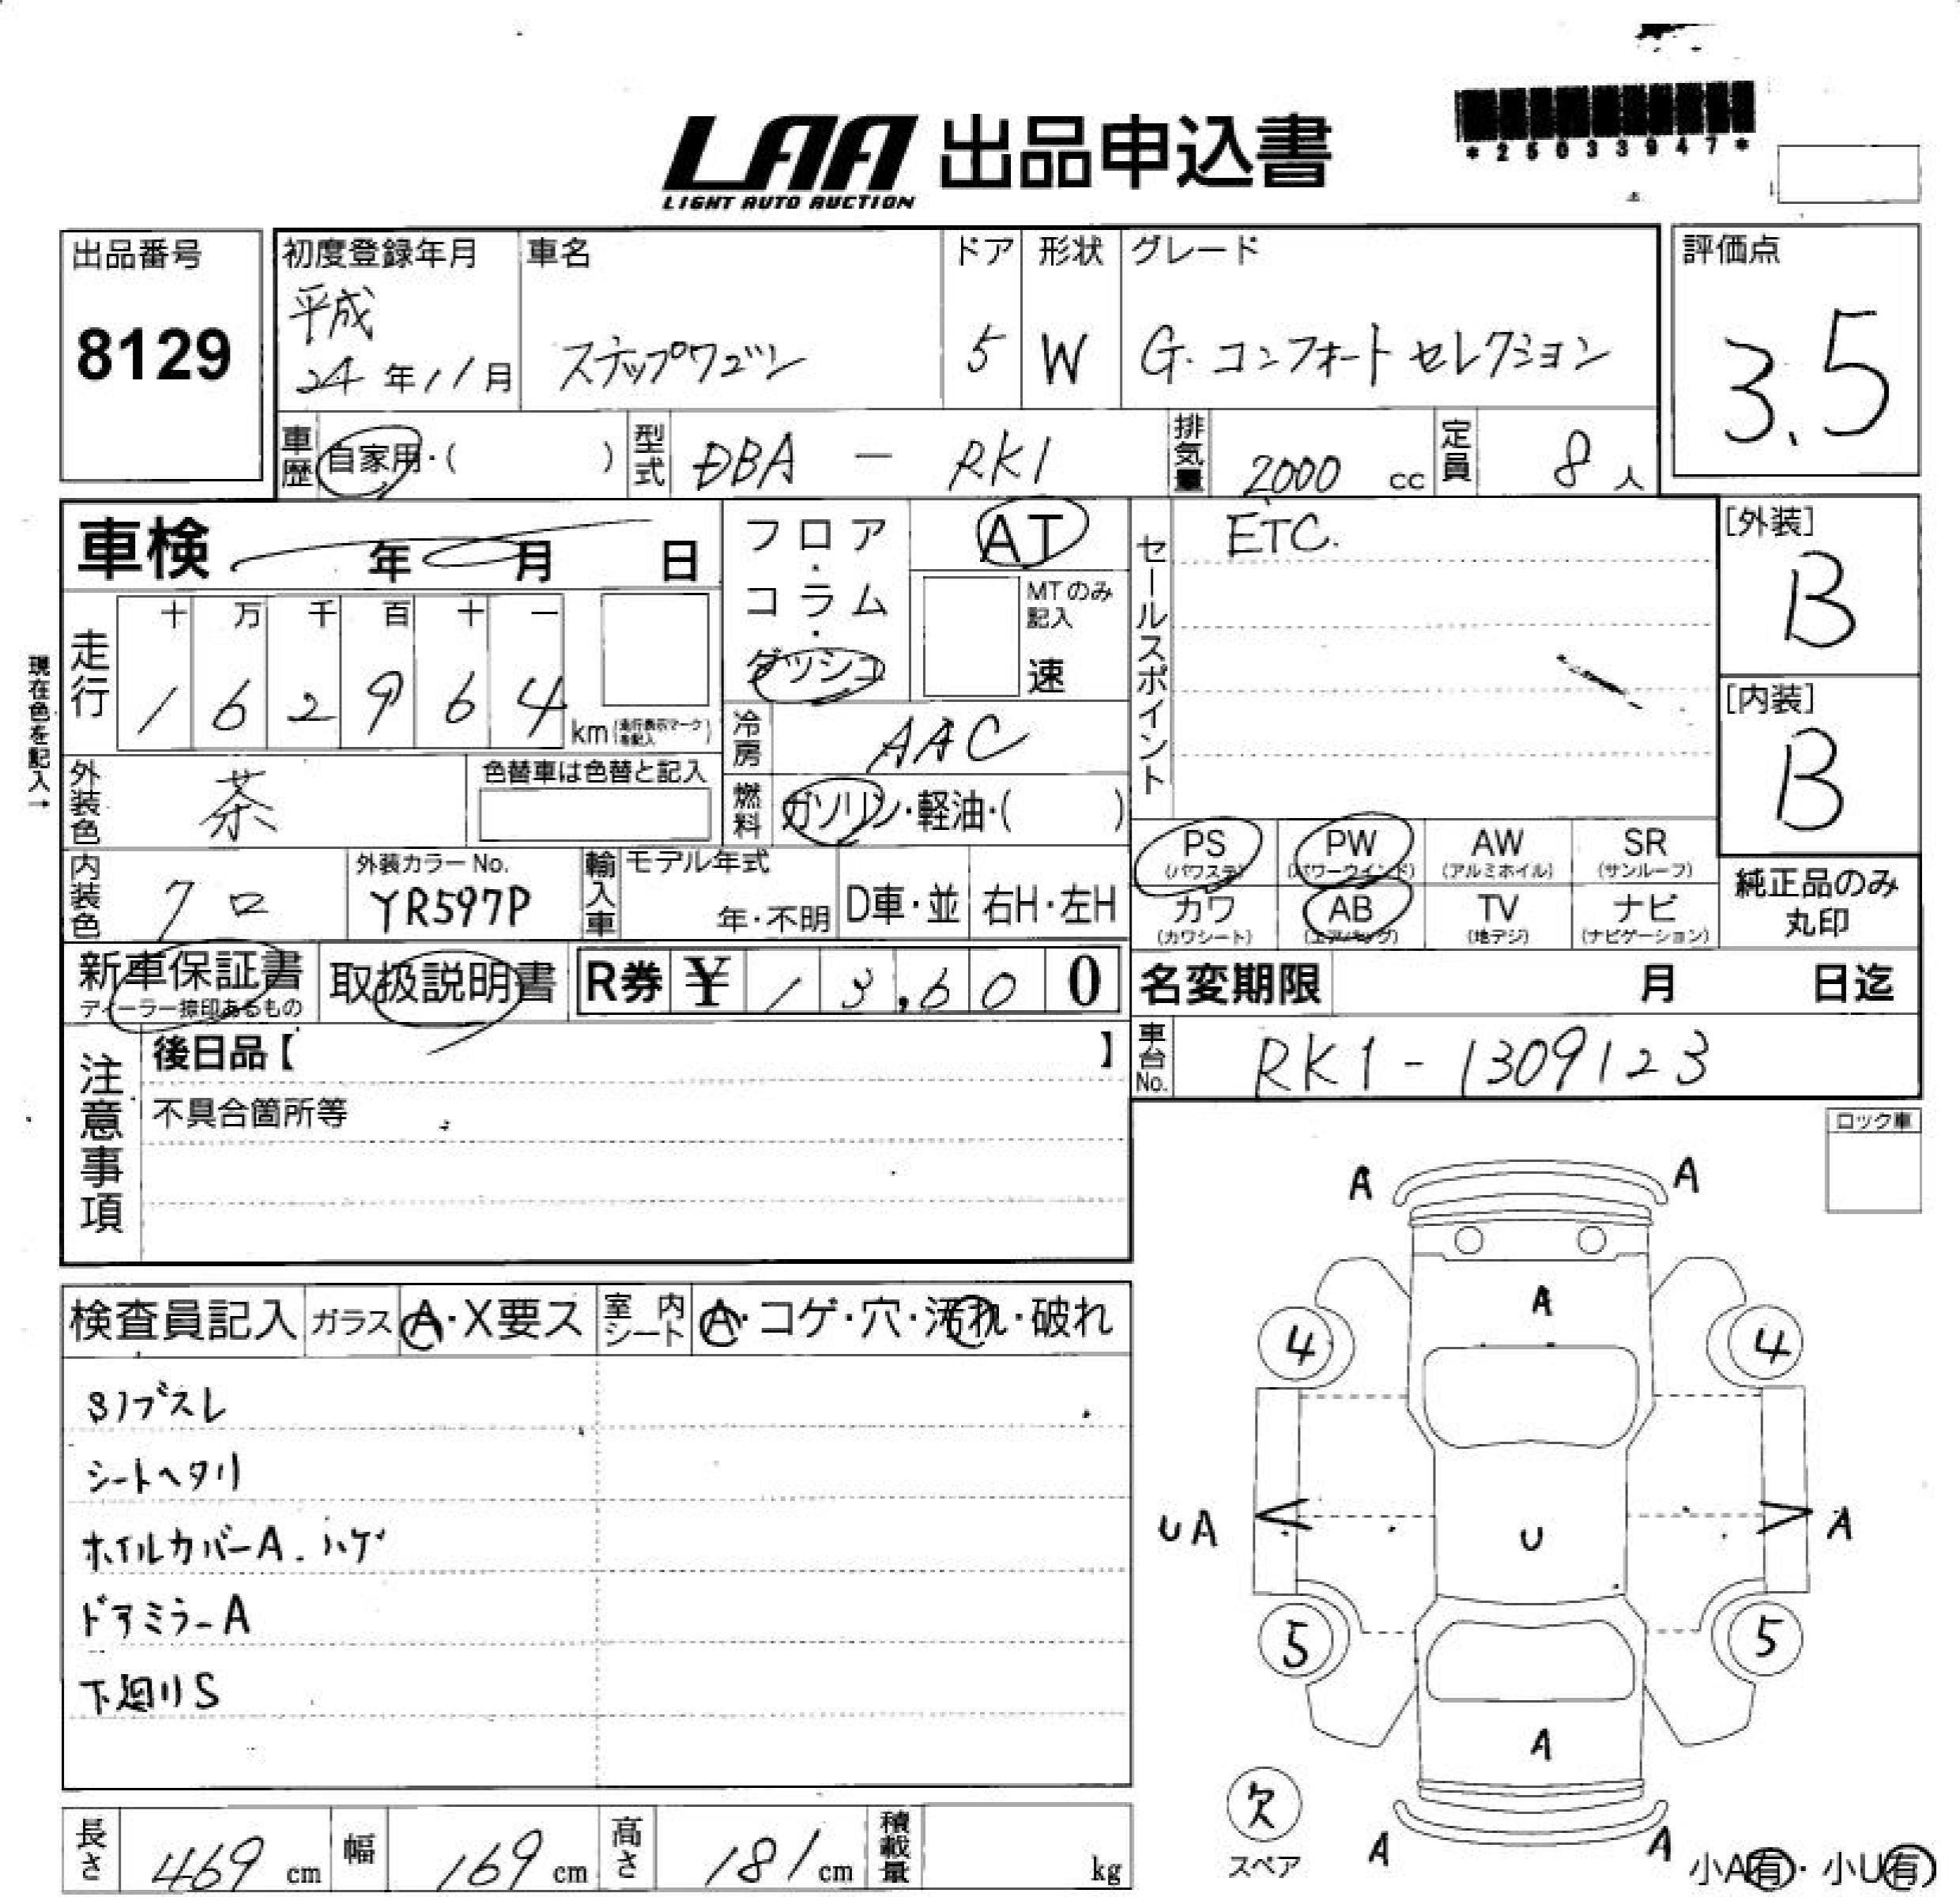 LAA 出品申込書
LIGHT AUTO AUCTION
*25033947*
出品番号
8129
初度登録年月
平成
24年11月
車名
ステップワゴン
ドア
5
形状
W
グレード
G・コンフォートセレクション
評価点
3.5
車歴 自家用・( )
型式 DBA - RK1
排気量 2000 cc
定員 8人
車検 年 月 日
フロア・コラム・ダッシュ
AT
MTのみ記入
速
セールスポイント
ETC.
[外装]
B
[内装]
B
現在色を記入→
走行
十 万 千 百 十 一
1 6 2 9 6 4 km (走行表示マークを記入)
冷房 AAC
外装色 茶
色替車は色替と記入
燃料 ガソリン・軽油・( )
内装色 クロ
外装カラーNo.
YR597P
輸入車 モデル年式
年・不明 D車・並 右H・左H
PS (パワステ)
PW (パワーウインド)
AW (アルミホイル)
SR (サンルーフ)
カワ (カワシート)
AB (エアバッグ)
TV (地デジ)
ナビ (ナビゲーション)
純正品のみ
丸印
新車保証書
ディーラー捺印あるもの
取扱説明書
R券 ¥ 13,600
名変期限 月 日迄
車台No. RK1-1309123
注意事項
後日品【 】
不具合箇所等
ロック車
検査員記入 ガラス A・X要ス 室内シート A・コゲ・穴・汚れ・破れ
シートヘタリ
ホイルカバーA.ハゲ
ドアミラーA
下廻りS
A A
A
4 4
UA U A
5 5
A
欠
スペア
A A
小A有・小U有
長さ 469 cm
幅 169 cm
高さ 181 cm
積載量 kg